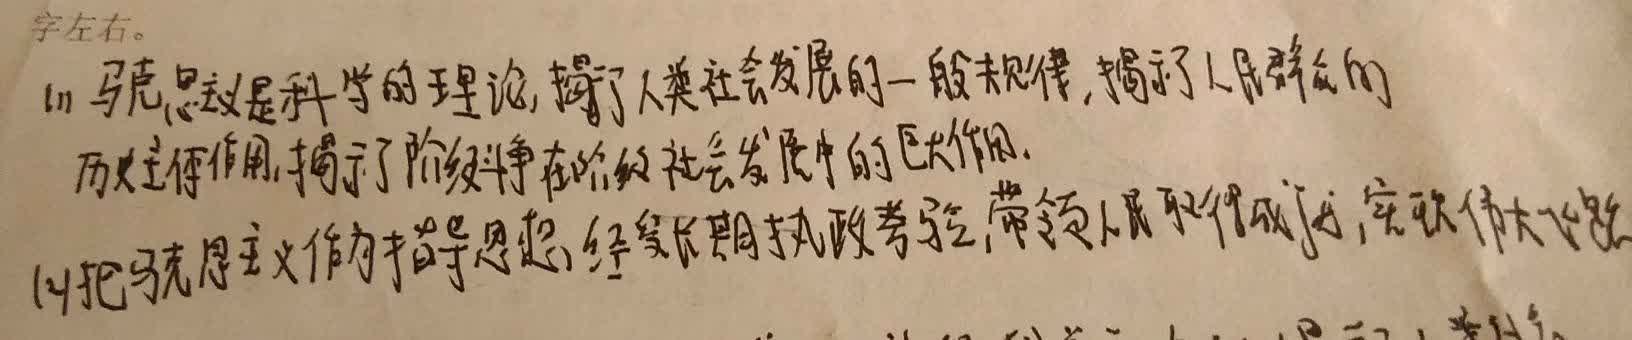 字左右。
(1) 马克思主义是科学的理论,揭示了人类社会发展的一般规律,揭示了人民群众的
历史主体作用,揭示了阶级斗争在阶级社会发展中的巨大作用.
(2)把马克思主义作为指导思想,经受长期执政考验,带领人民取得成就,实现伟大飞跃